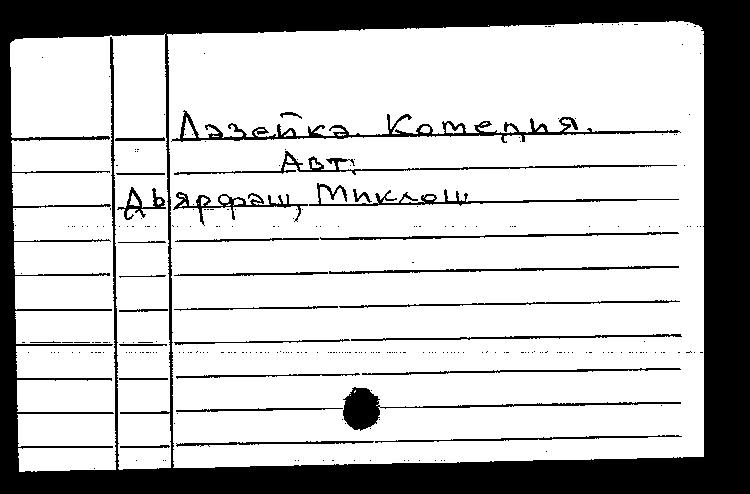 Лазейка. Комедия.
Авт:
Дьярфаш, Миклош